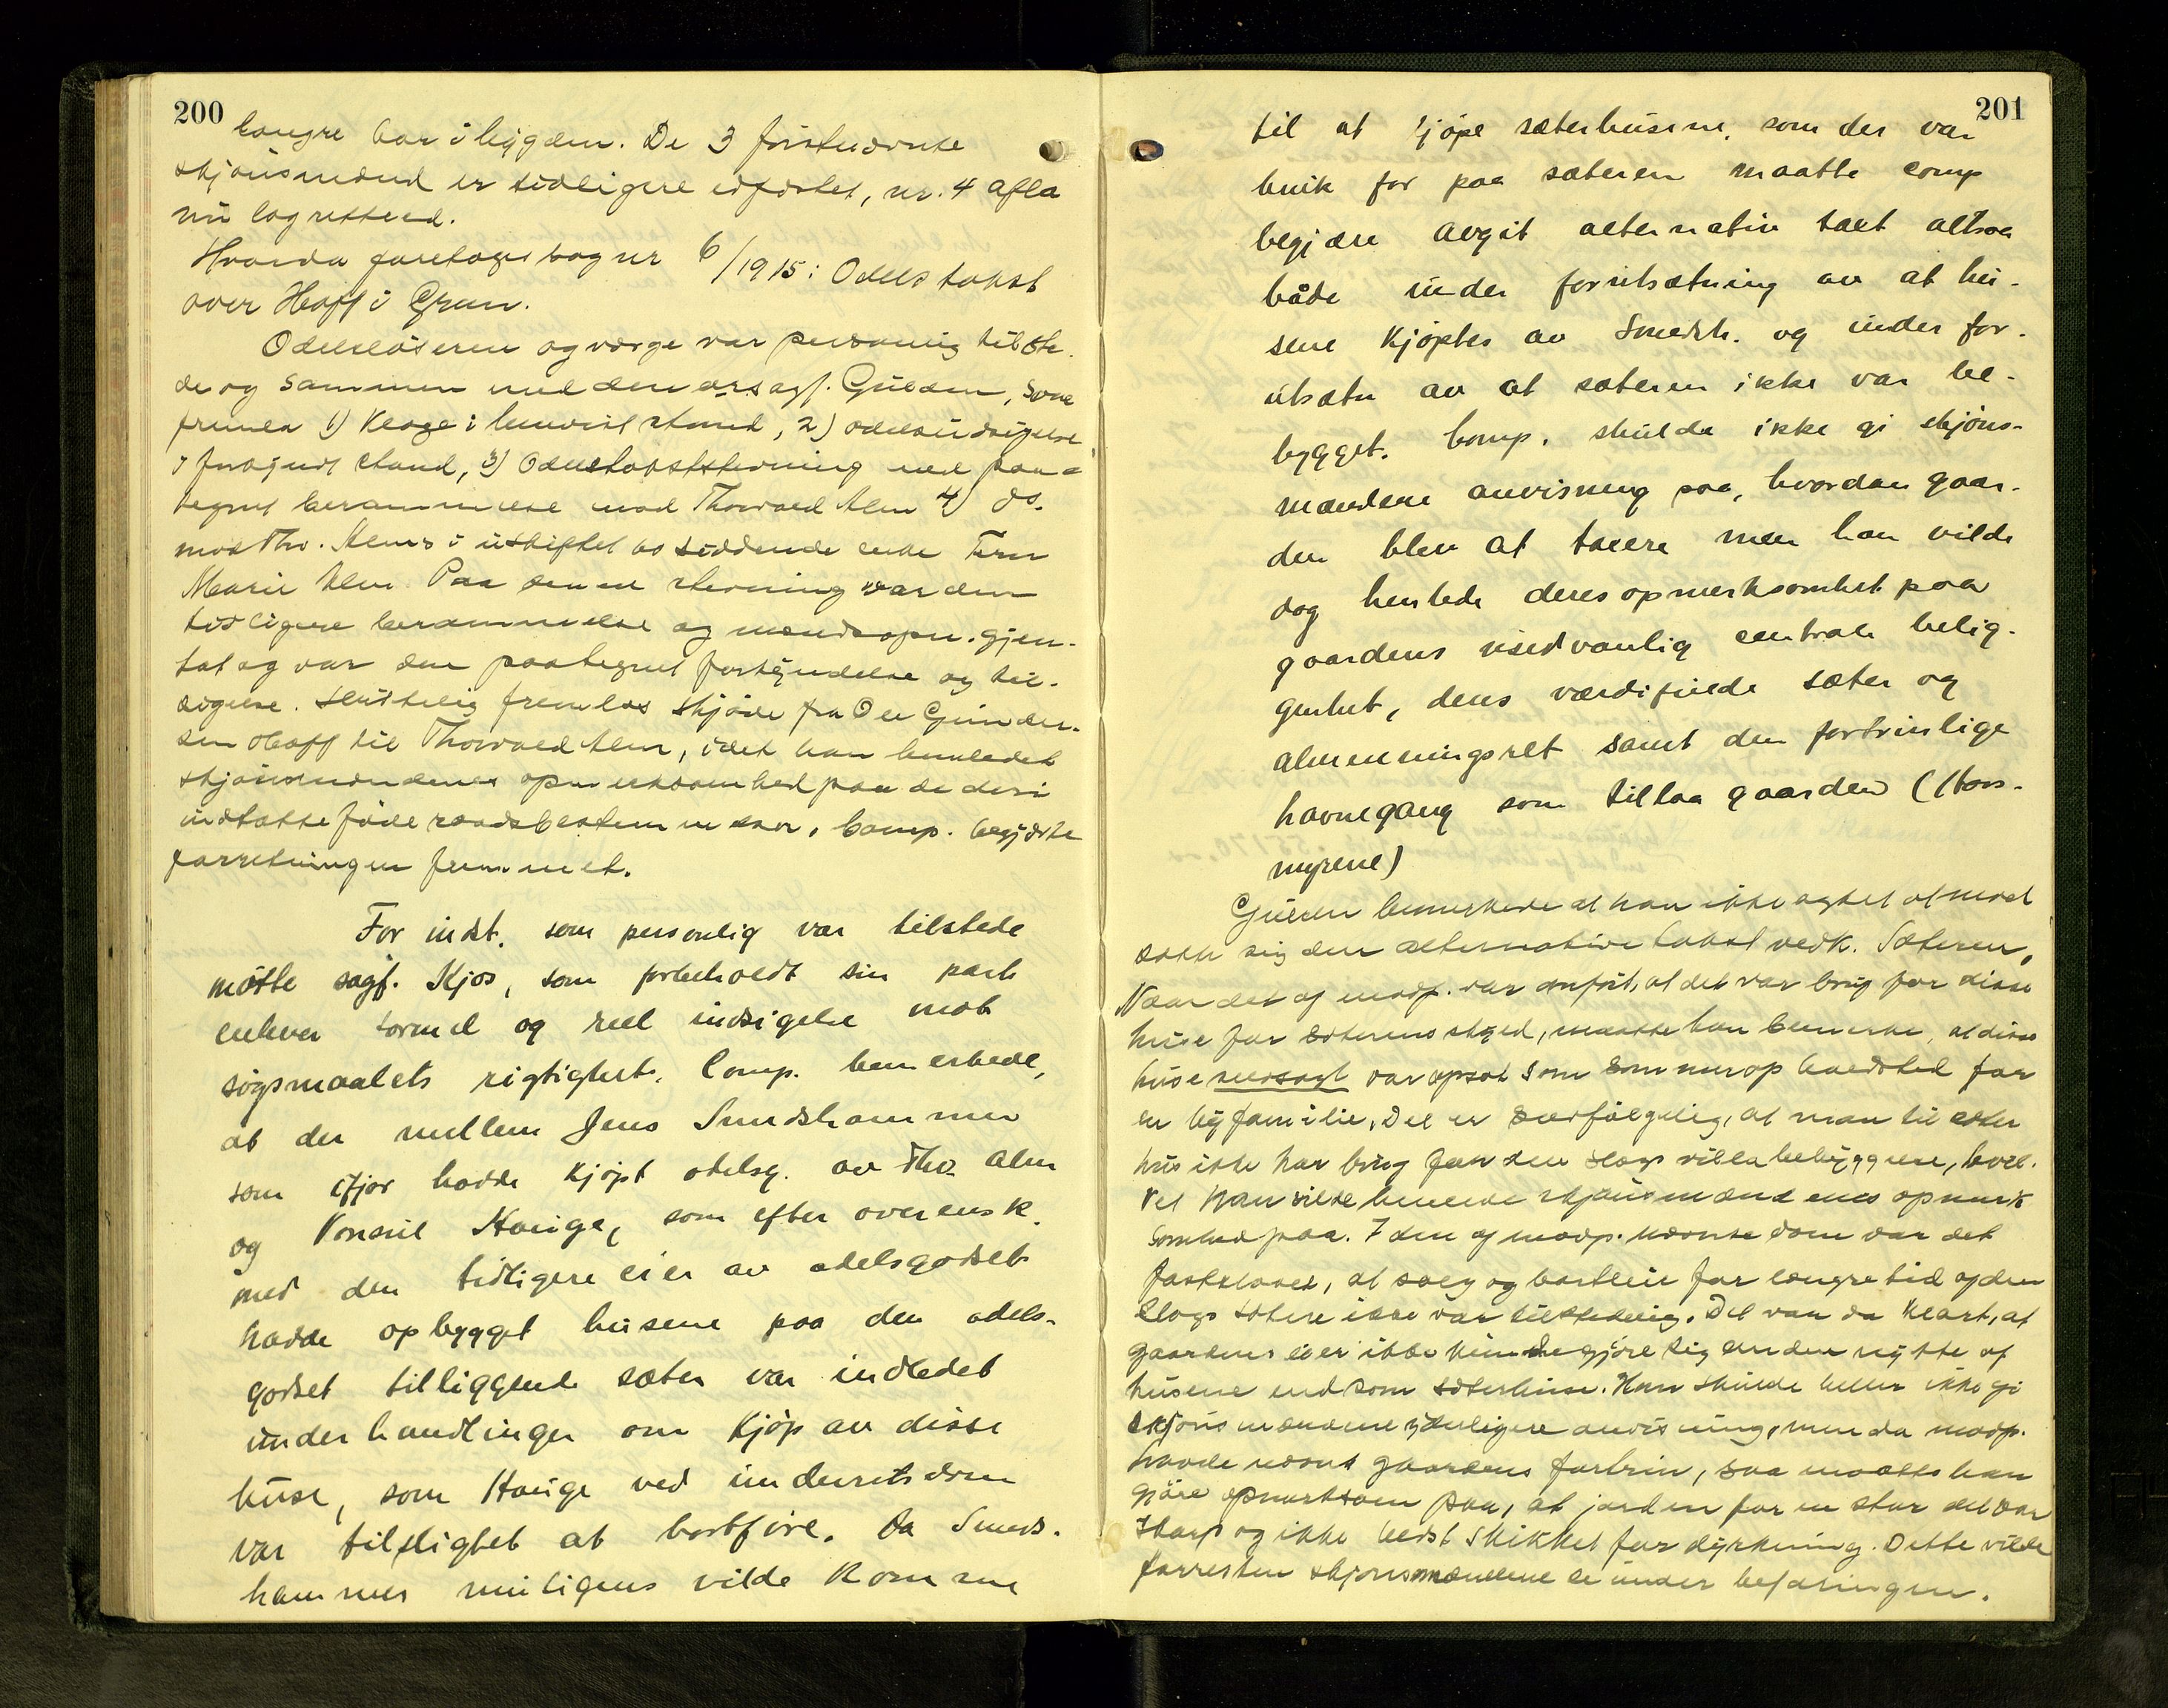 200
længre bor i bygden. De 3 førstnævnte
skjønsmænd er tidligere edfæstet, nr. 4 afla
nu lagretteed.
Hvorda foretoges sag nr 6/1915: Odelstakst
over Hoff i Gran.
Odelsløseren og værge var personlig tilste-
de og sammen med dem ors.agf. Gulden, som
fremla 1) Klage i beuvist stand, 2) odelsudsigelse
i stand, 3) Odelstakststevning med paa-
tegnet berammelse mod Thorvald Alm 4) do.
mod Thv. Alms i uskiftet bo siddende enke Fru
Marie Alm. Paa denne stevning var den
tidligere berammelse og mændsopn. gjen-
tat og var den paategnet forkyndelse og til-
sigelse. Sluttelig fremlas skjøde fra Ole Gunder-
sen Hoff til Thorvald Alm, idet han henledet
skjønsmændenes opmerksomhed paa de deri
indtatte føderaadsbestemmelser. Comp. begjærte
forretningen fremmet.
For indst. som personlig var tilstede
møtte sagf. Kjos, som forbeholdt sin part
enhver formel og reel indsigelse mot
søgsmaalets rigtighet. Comp. bemerkede,
at der mellem Jens Smedshammer
som ifjor hadde kjøpt odelsg. av Thv. Alm
og Konsul Hauge, som efter overensk.
med den tidligere eier av odelsgodset
hadde opbygget husene paa den odels-
godset tilliggende sæter var indledet
underhandlinger om kjøp av disse
huse, som Hauge ved underretsdom
var tilpligtet at bortføre. Da Smeds-
hammer muligens vilde komme
201
til at kjøpe sæterhusene, som der var
bruk for paa sæteren maatte comp
begjære avgit alternativ takt altsaa
både under forutsætning av at hu-
sene kjøptes av Smedsh. og under for-
utsætn av at sæteren ikke var be-
bygget. Comp. skulde ikke gi skjøns-
mændene anvisning paa, hvordan gaar-
den blev at taxere men han vilde
dog henlede deres opmerksomhet paa
gaardens usedvanlig centrale belig-
genhet, dens værdifulde sæter og
almenningsret samt den fortrinlige
havnegang som tillaa gaarden (Hovs-
myrene)
Gulden bemerkede at han ikke agtet at mod
sætte sig den alternative takst vedk. Sæteren.
Naar det af modp. var anført, at det var brug for disse
huse for sæterens skyld, maatte han bemerke, at disse
huse var opsat som sommeropholdsted for
en byfamilie. Det er selvfølgelig, at man til sæter
hus ikke har brug for den slags villabebyggelse, hvil-
ket han vilde henlede skjønsmændenes opmerk
somhed paa. I den af modp. nævnte dom var det
fastslaaet, at salg og bortleie for længre tid af den
slags sætere ikke var tilstedelig. Det var da klart, at
gaardens eier ikke kunde gjøre sig anden nytte af
husene end som sæterhuse. Han skulde heller ikke gi
skjønsmændene yderligere anvisning, men da modp.
havde nævnt gaardens fortrin, saa maatte han
gjøre opmerksom paa, at jorden for en stor del var
skarp og ikke bedst skikket for dyrkning. Dette vilde
forresten skjønsmændene se under befaringen.